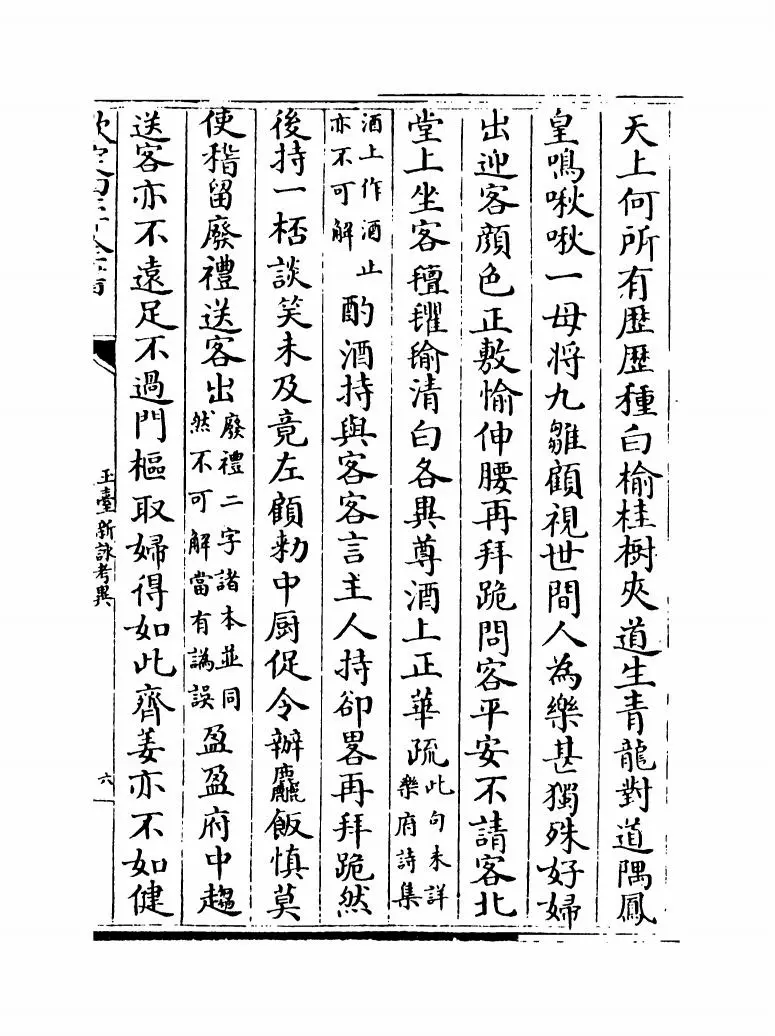 天上何所有歴歴種白榆桂樹夾道生青龍對道隅鳳
皇鳴啾啾一母将九雛顧視世間人為樂甚獨殊好婦
出迎客顔色正敷愉伸腰再拜跪問客平安不請客北
堂上坐客氊氍毹清白各異尊酒上正華疏此句未詳樂府詩集
酒上作酒止亦不可解酌酒持與客客言主人持卻畧再拜跪然
後持一桮談笑未及竟左顧勑中厨促令辦麤飯慎莫
使稽留廢禮送客出廢禮二字諸本並同然不可解當有譌誤盈盈府中趨
送客亦不遠足不過門樞取婦得如此齊姜亦不如健
玉臺新詠考異
六